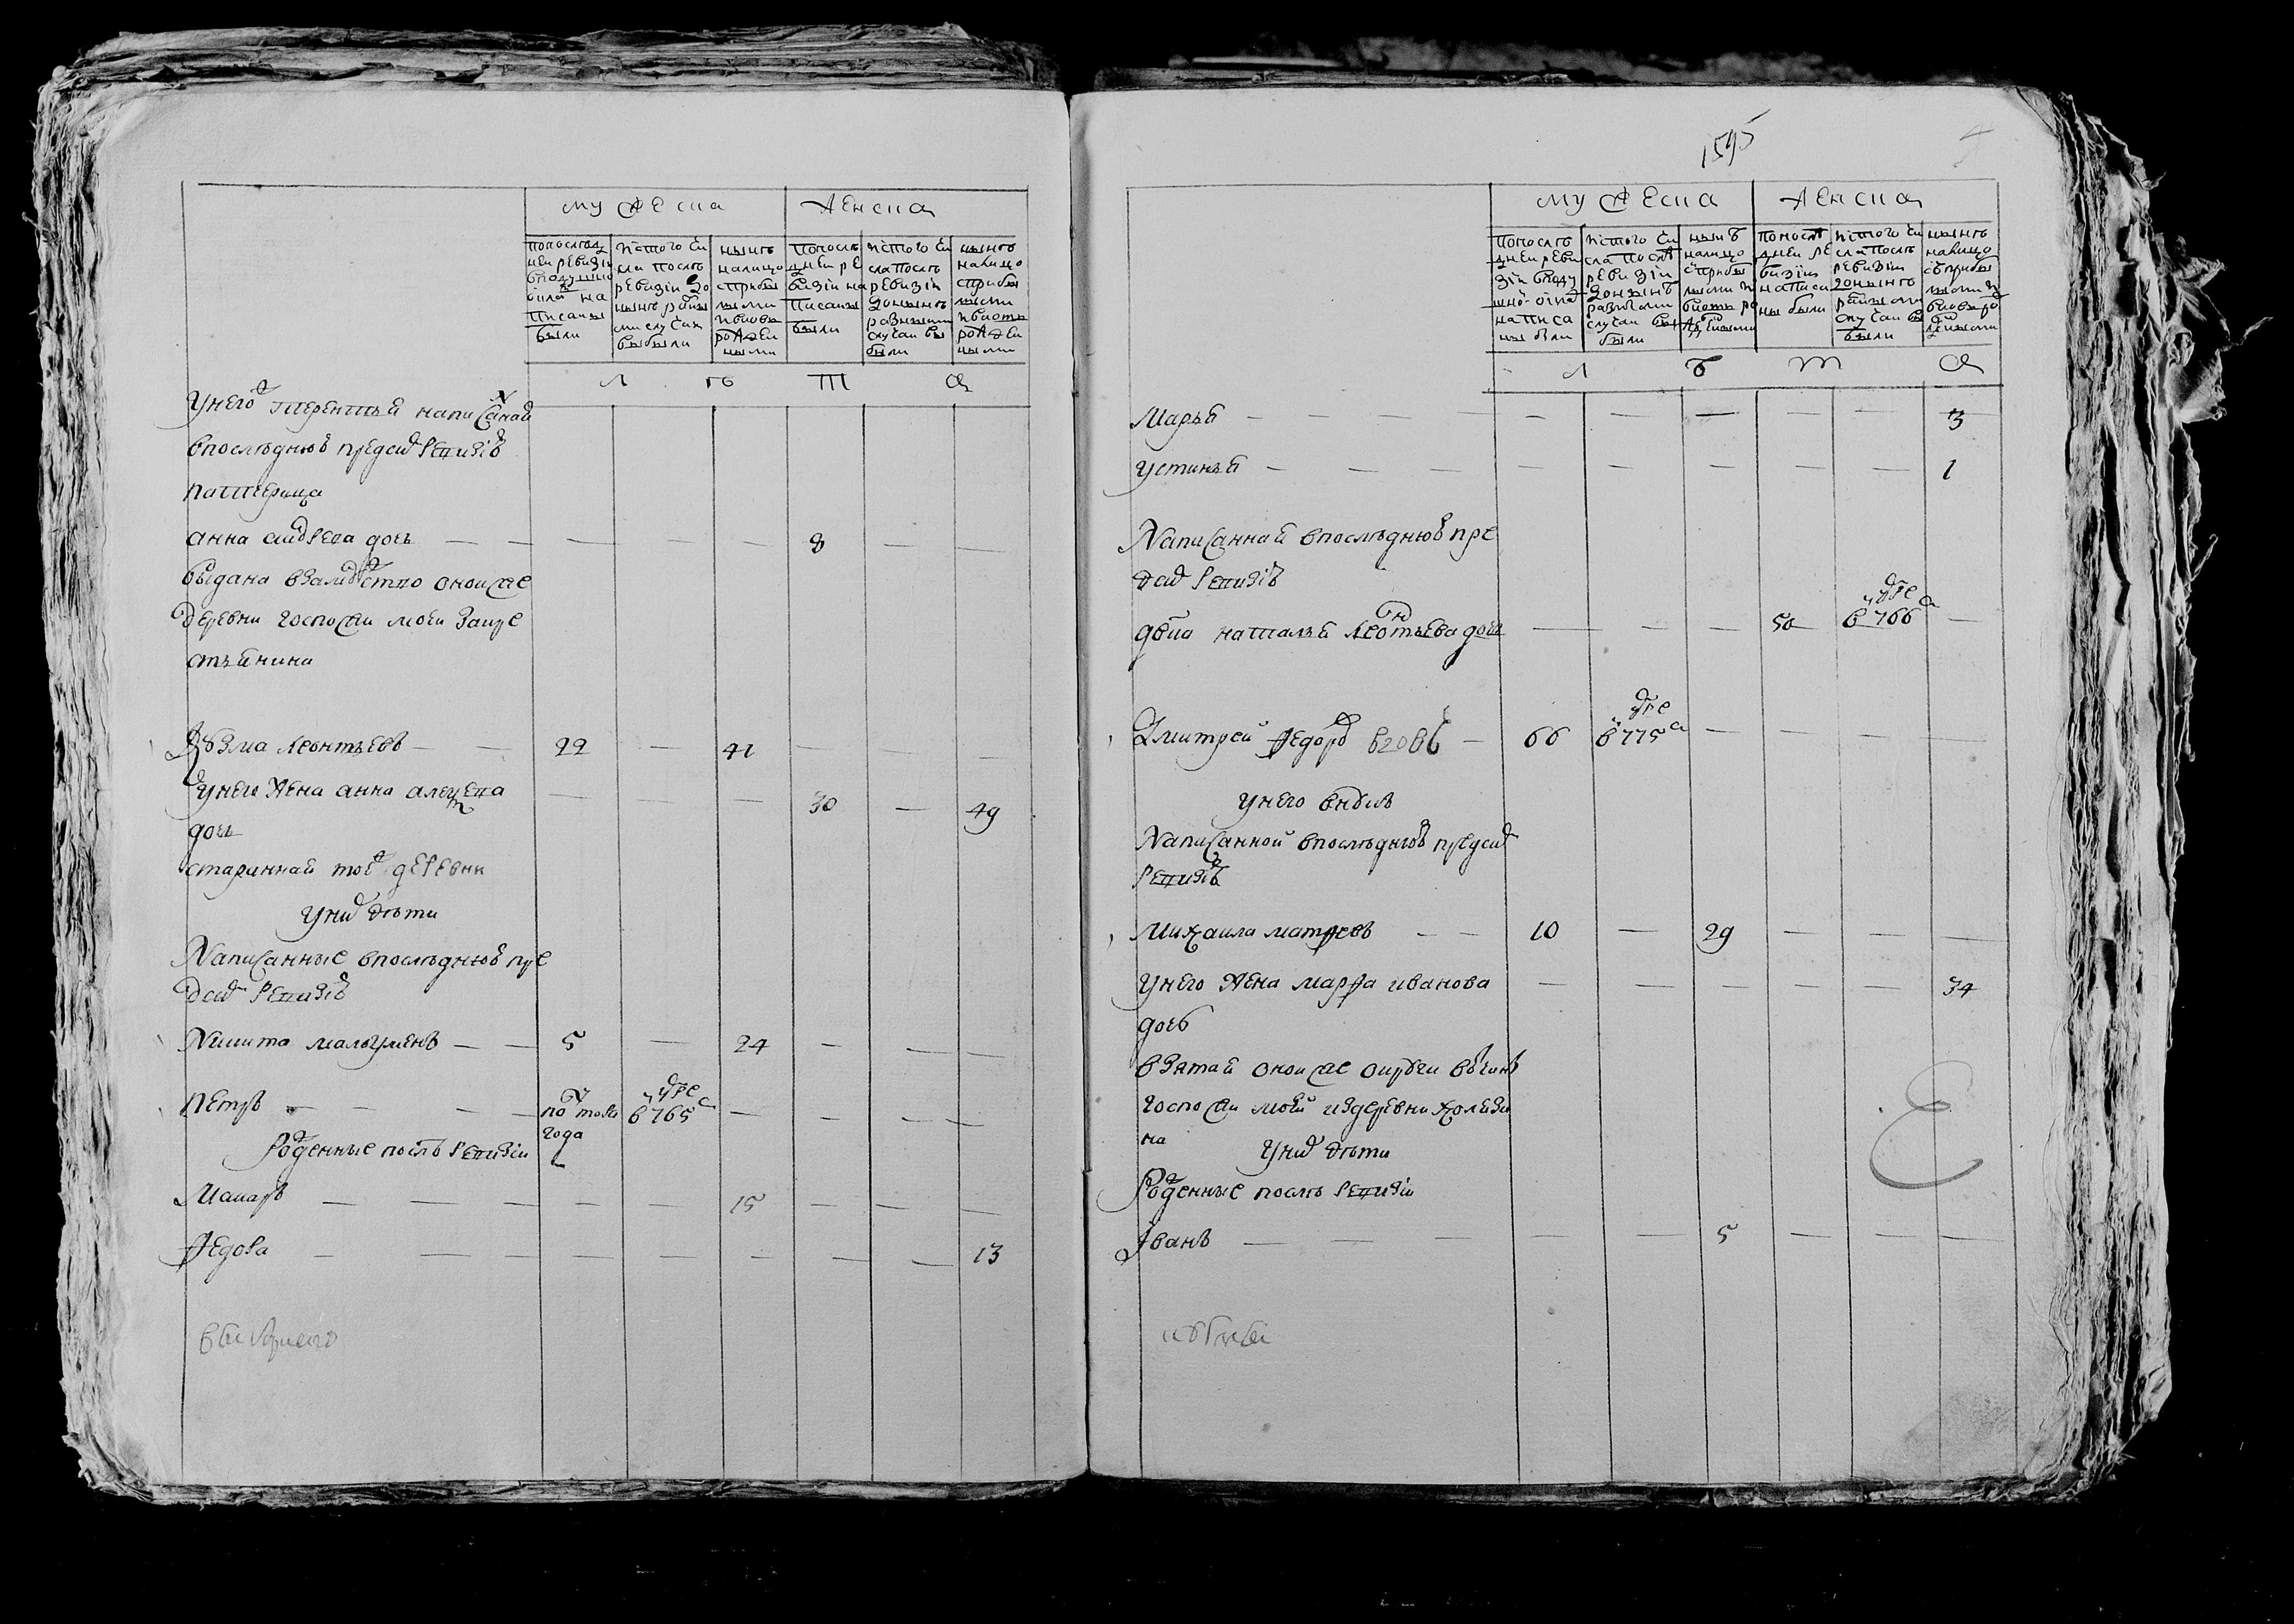 мужеска женска
по послед
ней ревизи
в подушно
оклад на
писаны
были
ис того чи
сла после
ревизіи до
ныне разны
ми случаи
выбыли
ныне
налицо
с прибы
лыми
и вновь
рожден
ными
по после
дней ре
визіи на
писаны
были
ис того чи
сла после
ревизіи
до ныне
разными
случаи вы
были
ныне
налицо
с прибы
лыми
и вновь
рожден
ными
л ѣ т а
у него терентья написаной
в последнюю пред сим ревизию
патчерица
анна андреева дочь — 8 — —
выдана в замужество оной же
деревни госпожи моей за кре
стьянина
Кузма леонтьевъ — 22 — 41 — — —
у него жена анна алексеева — — — 30 — 49
дочь
старинная той же деревни
у них дети
Написанные в последнюю пре
д сим ревизию
Никита 5 — 24 — — —
Петръ — по тово года в 765 — — — —
рожденные после ревизіи
Макаръ — — — 15 — — —
Федора — — — — — — 13
1595
мужеска женска
по после
дней реви
зіи в поду
шно оклад
написа
ны были
ис того чи
сла после
ревизіи
до ныне
разными
случаи вы
были
ныне
налицо
с прибы
лыми и
вновь ро
жденными
по после
дней ре
визіи
написа
ны были
ис того чи
сла после
ревизіи
до ныне
разными
случаи вы
были
ныне
налицо
с прибы
лыми и
вновь ро
жденными
л ѣ т а
Марья — — — — — — 3
устинья — — — — — — 1
Написанная в последнюю пре
д сим ревизию
наталья леонтьева дочь — — — 50 в 766 —
Дмитрей федоровъ вдовъ — 66 в 775 — — — —
у него
Написанной в последнюю пред сим
ревизию
Михаила матфеевъ — 10 — 29 — — —
у него жена марфа иванова — — — — — 34
дочь
взятая оной же округи вотчины
госпожи моей из деревни
на
у них дети
Рожденные после ревизіи
Іванъ — — — 5 — — —